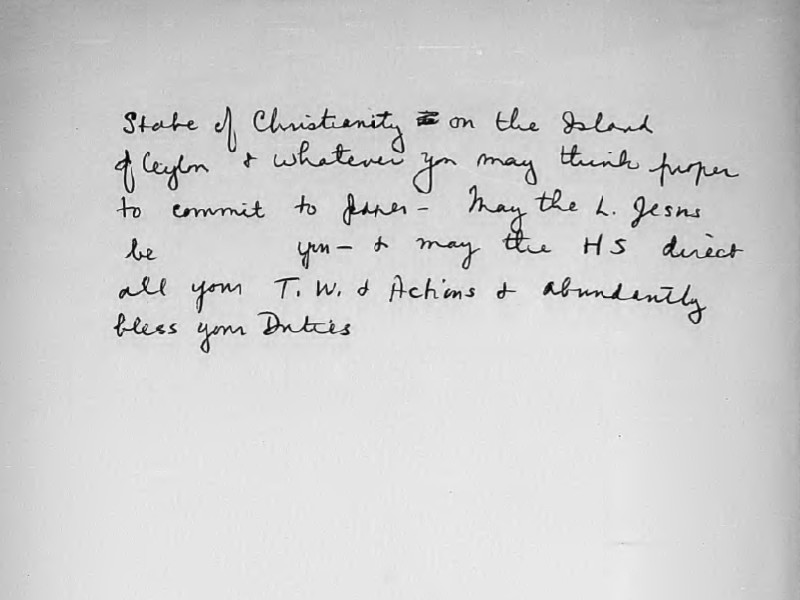 State of Christianity on the Island
of Ceylon & whatever you may think proper
to commit to paper - May the L. Jesus
be you - & may the HS direct
all your T. W. & Actions & abundantly
bless your Duties